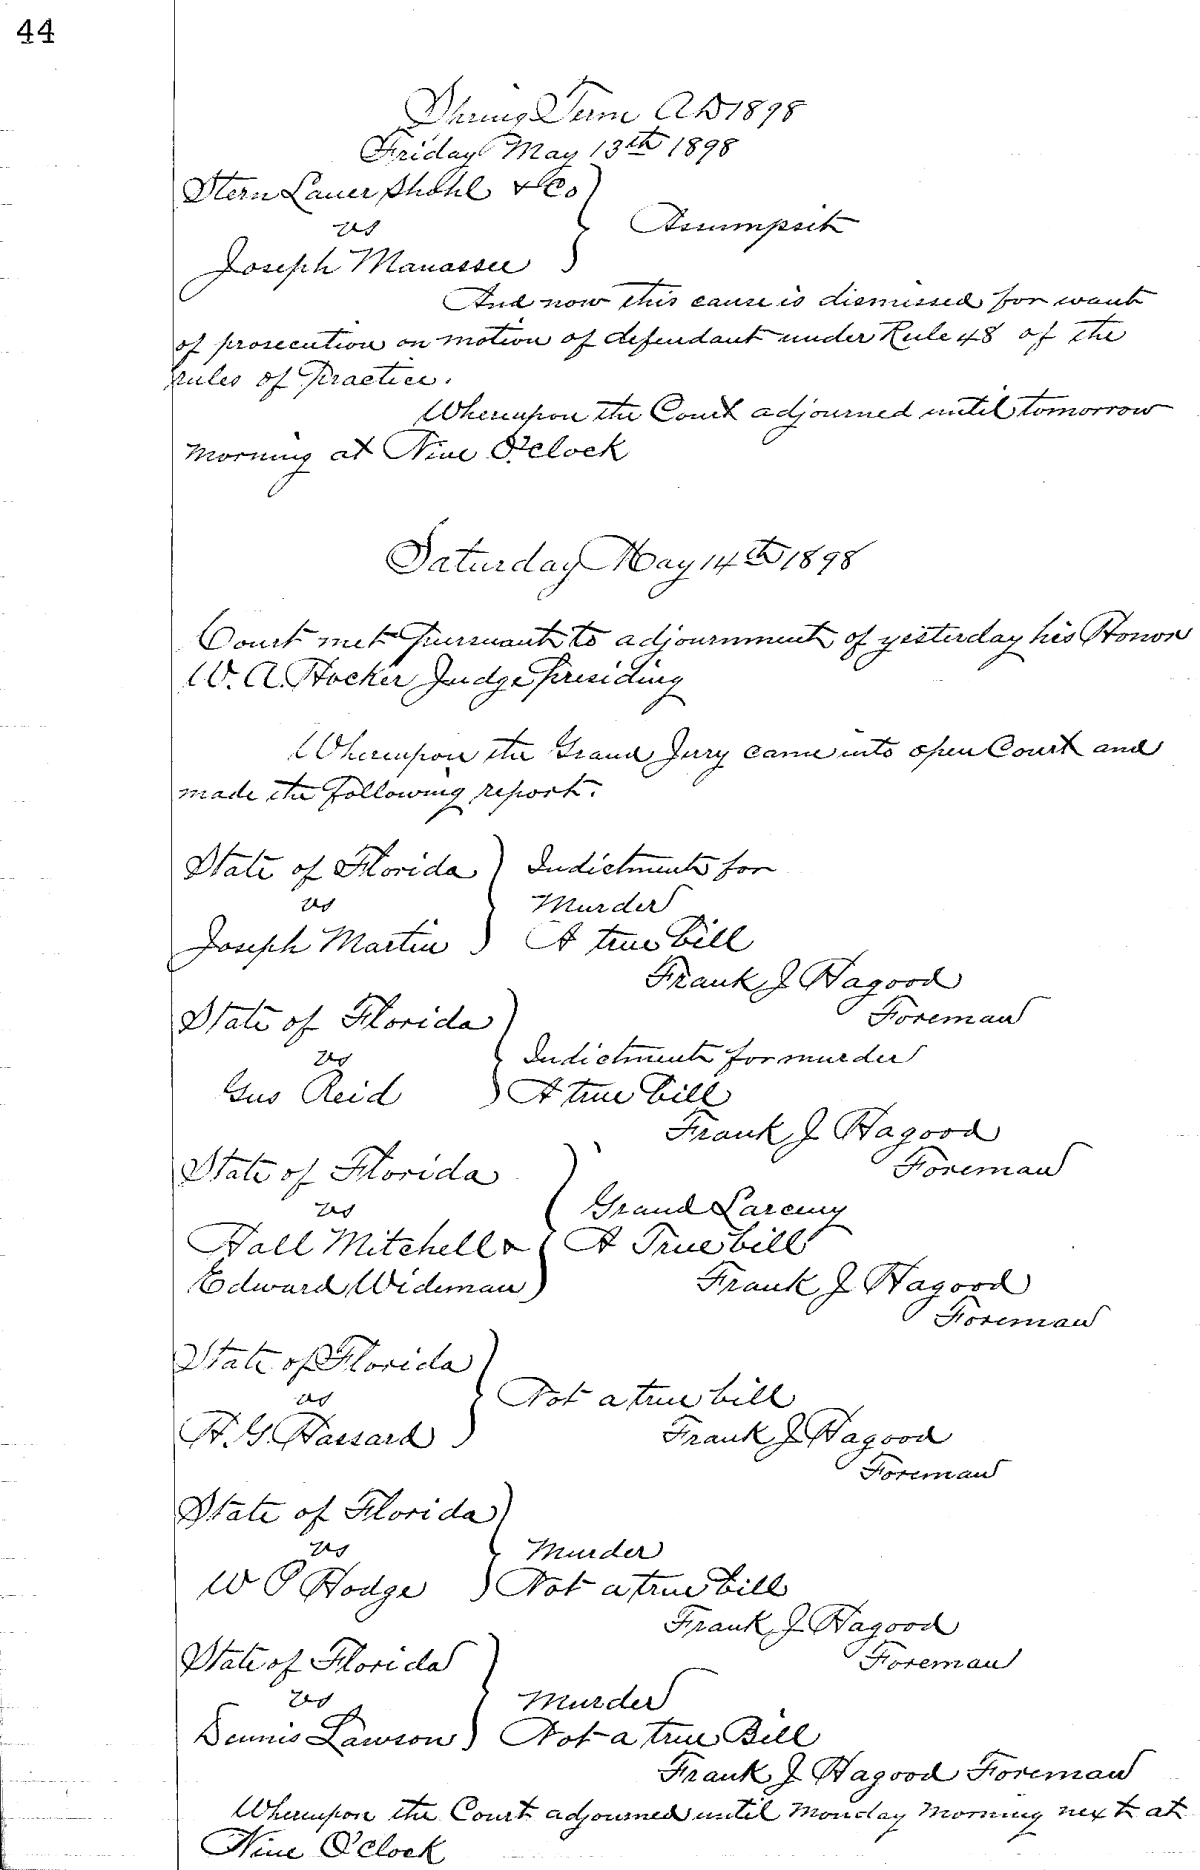 44
Spring Term AD 1898
Friday May 13th 1898
Stern Lauer Shohl & Co
vs
Assumpsit
Joseph Manassee
And now this cause is dismissed for want
of prosecution on motion of defendant under Rule 48 of the
rules of Practice.
Whereupon the Court adjourned until tomorrow
morning at Nine O'clock
Saturday May 14th 1898
Court met pursuant to adjournment of yesterday his Honor
W. A. Hocker Judge presiding
Whereupon the Grand Jury came into open Court and
made the following report.
State of Florida Indictment for
vs Murder
Joseph Martin A true bill
Frank J Hagood
Foreman
State of Florida
vs Indictment for murder
Gus Reid A true bill
Frank J Hagood
Foreman
State of Florida
vs Grand Larceny
Hall Mitchell & A True bill
Edward Wideman Frank J Hagood
Foreman
State of Florida
vs Not a true bill
H. G. Hassard Frank J Hagood
Foreman
State of Florida
vs Murder
W O Hodge Not a true bill
Frank J Hagood
Foreman
State of Florida
vs Murder
Dennis Lawson Not a true Bill
Frank J Hagood Foreman
Whereupon the Court adjourned until Monday morning next at
Nine O'Clock